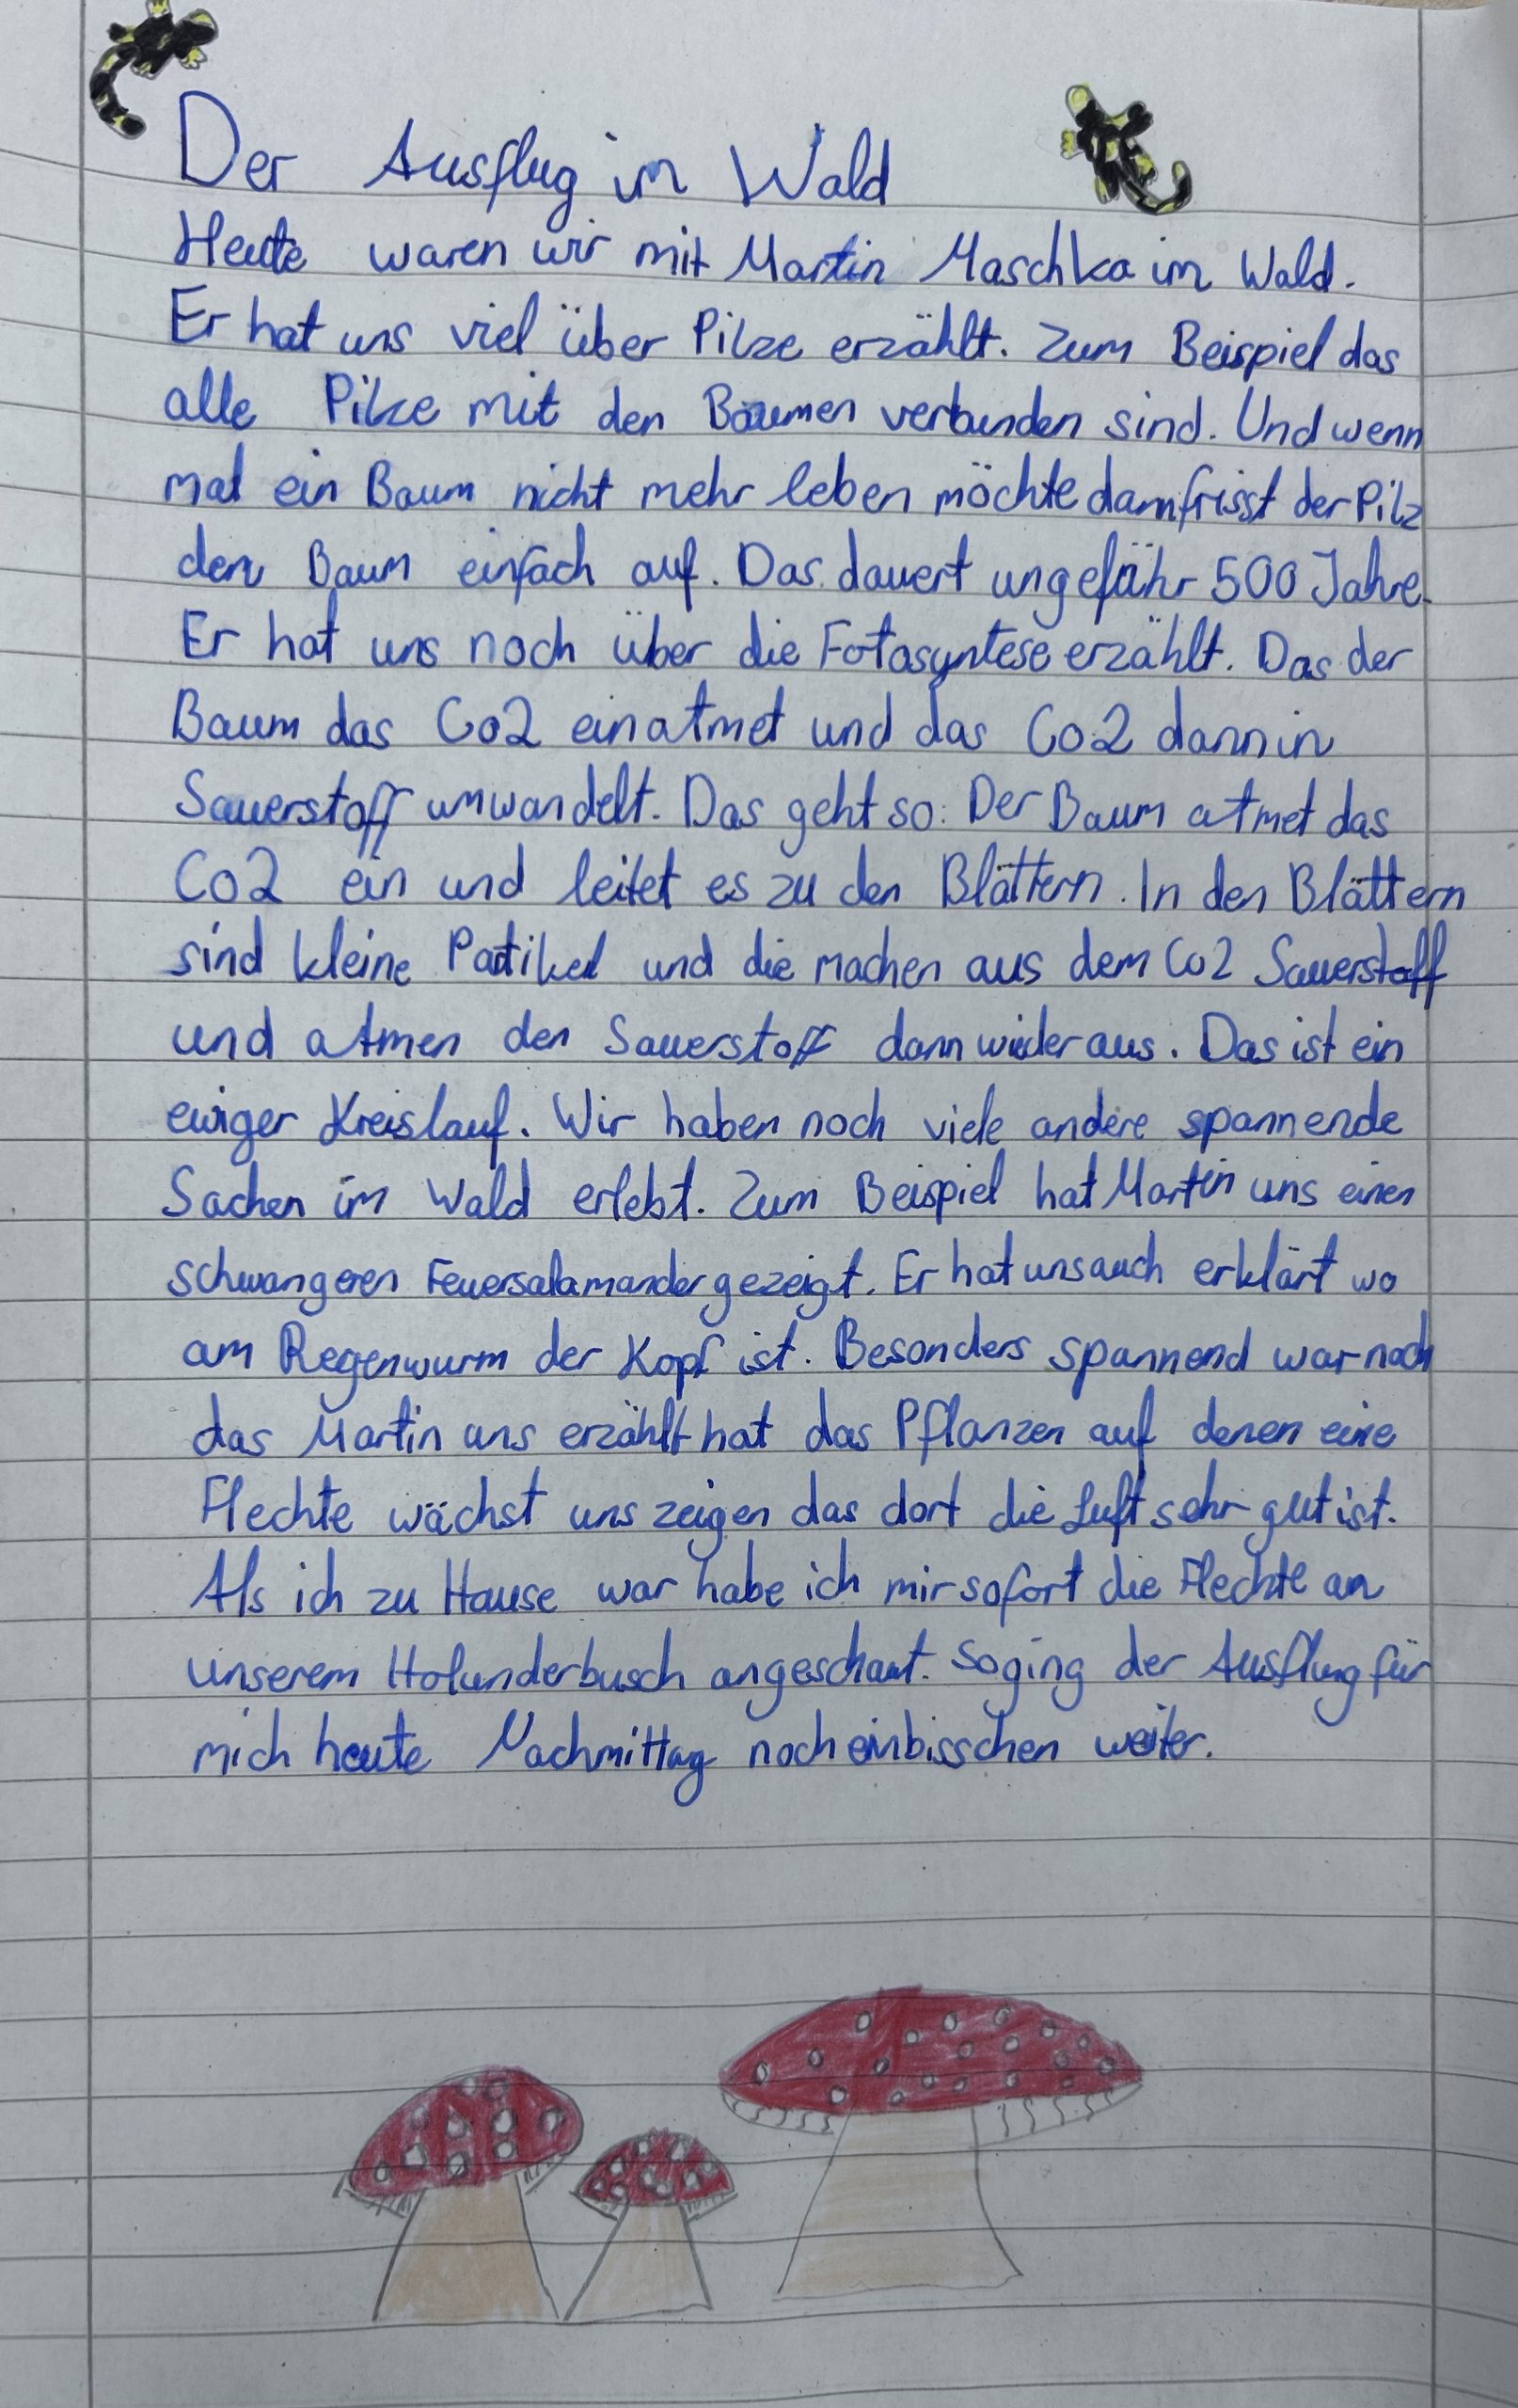 Der Ausflug im Wald
Heute waren wir mit Martin Maschka im Wald.
Er hat uns viel über Pilze erzählt. Zum Beispiel das
alle Pilze mit den Bäumen verbunden sind. Und wenn
mal ein Baum nicht mehr leben möchte dann frisst der Pilz
den Baum einfach auf. Das dauert ungefähr 500 Jahre.
Er hat uns noch über die Fotosyntese erzählt. Das der
Baum das Co2 einatmet und das Co2 dann in
Sauerstoff umwandelt. Das geht so: Der Baum atmet das
Co2 ein und leitet es zu den Blättern. In den Blättern
sind kleine Patikel und die machen aus dem Co2 Sauerstoff
und atmen den Sauerstoff dann wieder aus. Das ist ein
ewiger Kreislauf. Wir haben noch viele andere spannende
Sachen im Wald erlebt. Zum Beispiel hat Martin uns einen
schwangeren Feuersalamander gezeigt. Er hat uns auch erklärt wo
am Regenwurm der Kopf ist. Besonders spannend war noch
das Martin uns erzählt hat das Pflanzen auf denen eine
Flechte wächst uns zeigen das dort die Luft sehr gut ist.
Als ich zu Hause war habe ich mir sofort die Flechte an
unserem Holunderbusch angeschaut. So ging der Ausflug für
mich heute Nachmittag noch ein bisschen weiter.